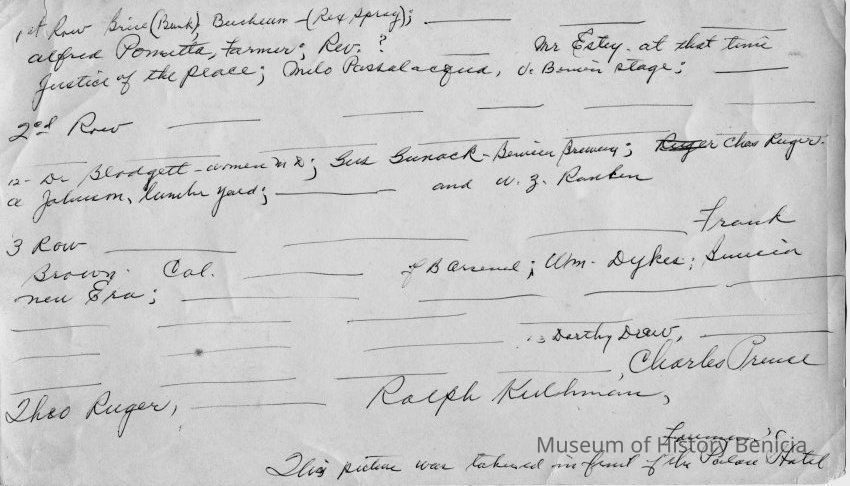 1st Row Brice (Bank) Bucheum - (Rex Spray);
Alfred Pometta, Farmer; Rev. ? Mr Estey. at that time
Justice of the Peace; Milo Passalacqua, stage;
2nd Row
12 - Dr Blodgett - women M D; Gus Gunack - Benicia Brewery; Ruger Chas Ruger.
a Johnson, lumber yard; and W. Z. Ranken
Frank
3 Row
Brown. Col. of B Arsenal; Wm. Dykes; Benicia
new Era;
13 Dorthy Drew,
Charles Preuse
Theo Ruger, Ralph Kulhman,
This picture was takened in front of the Palace Hotel
Museum of History Benicia